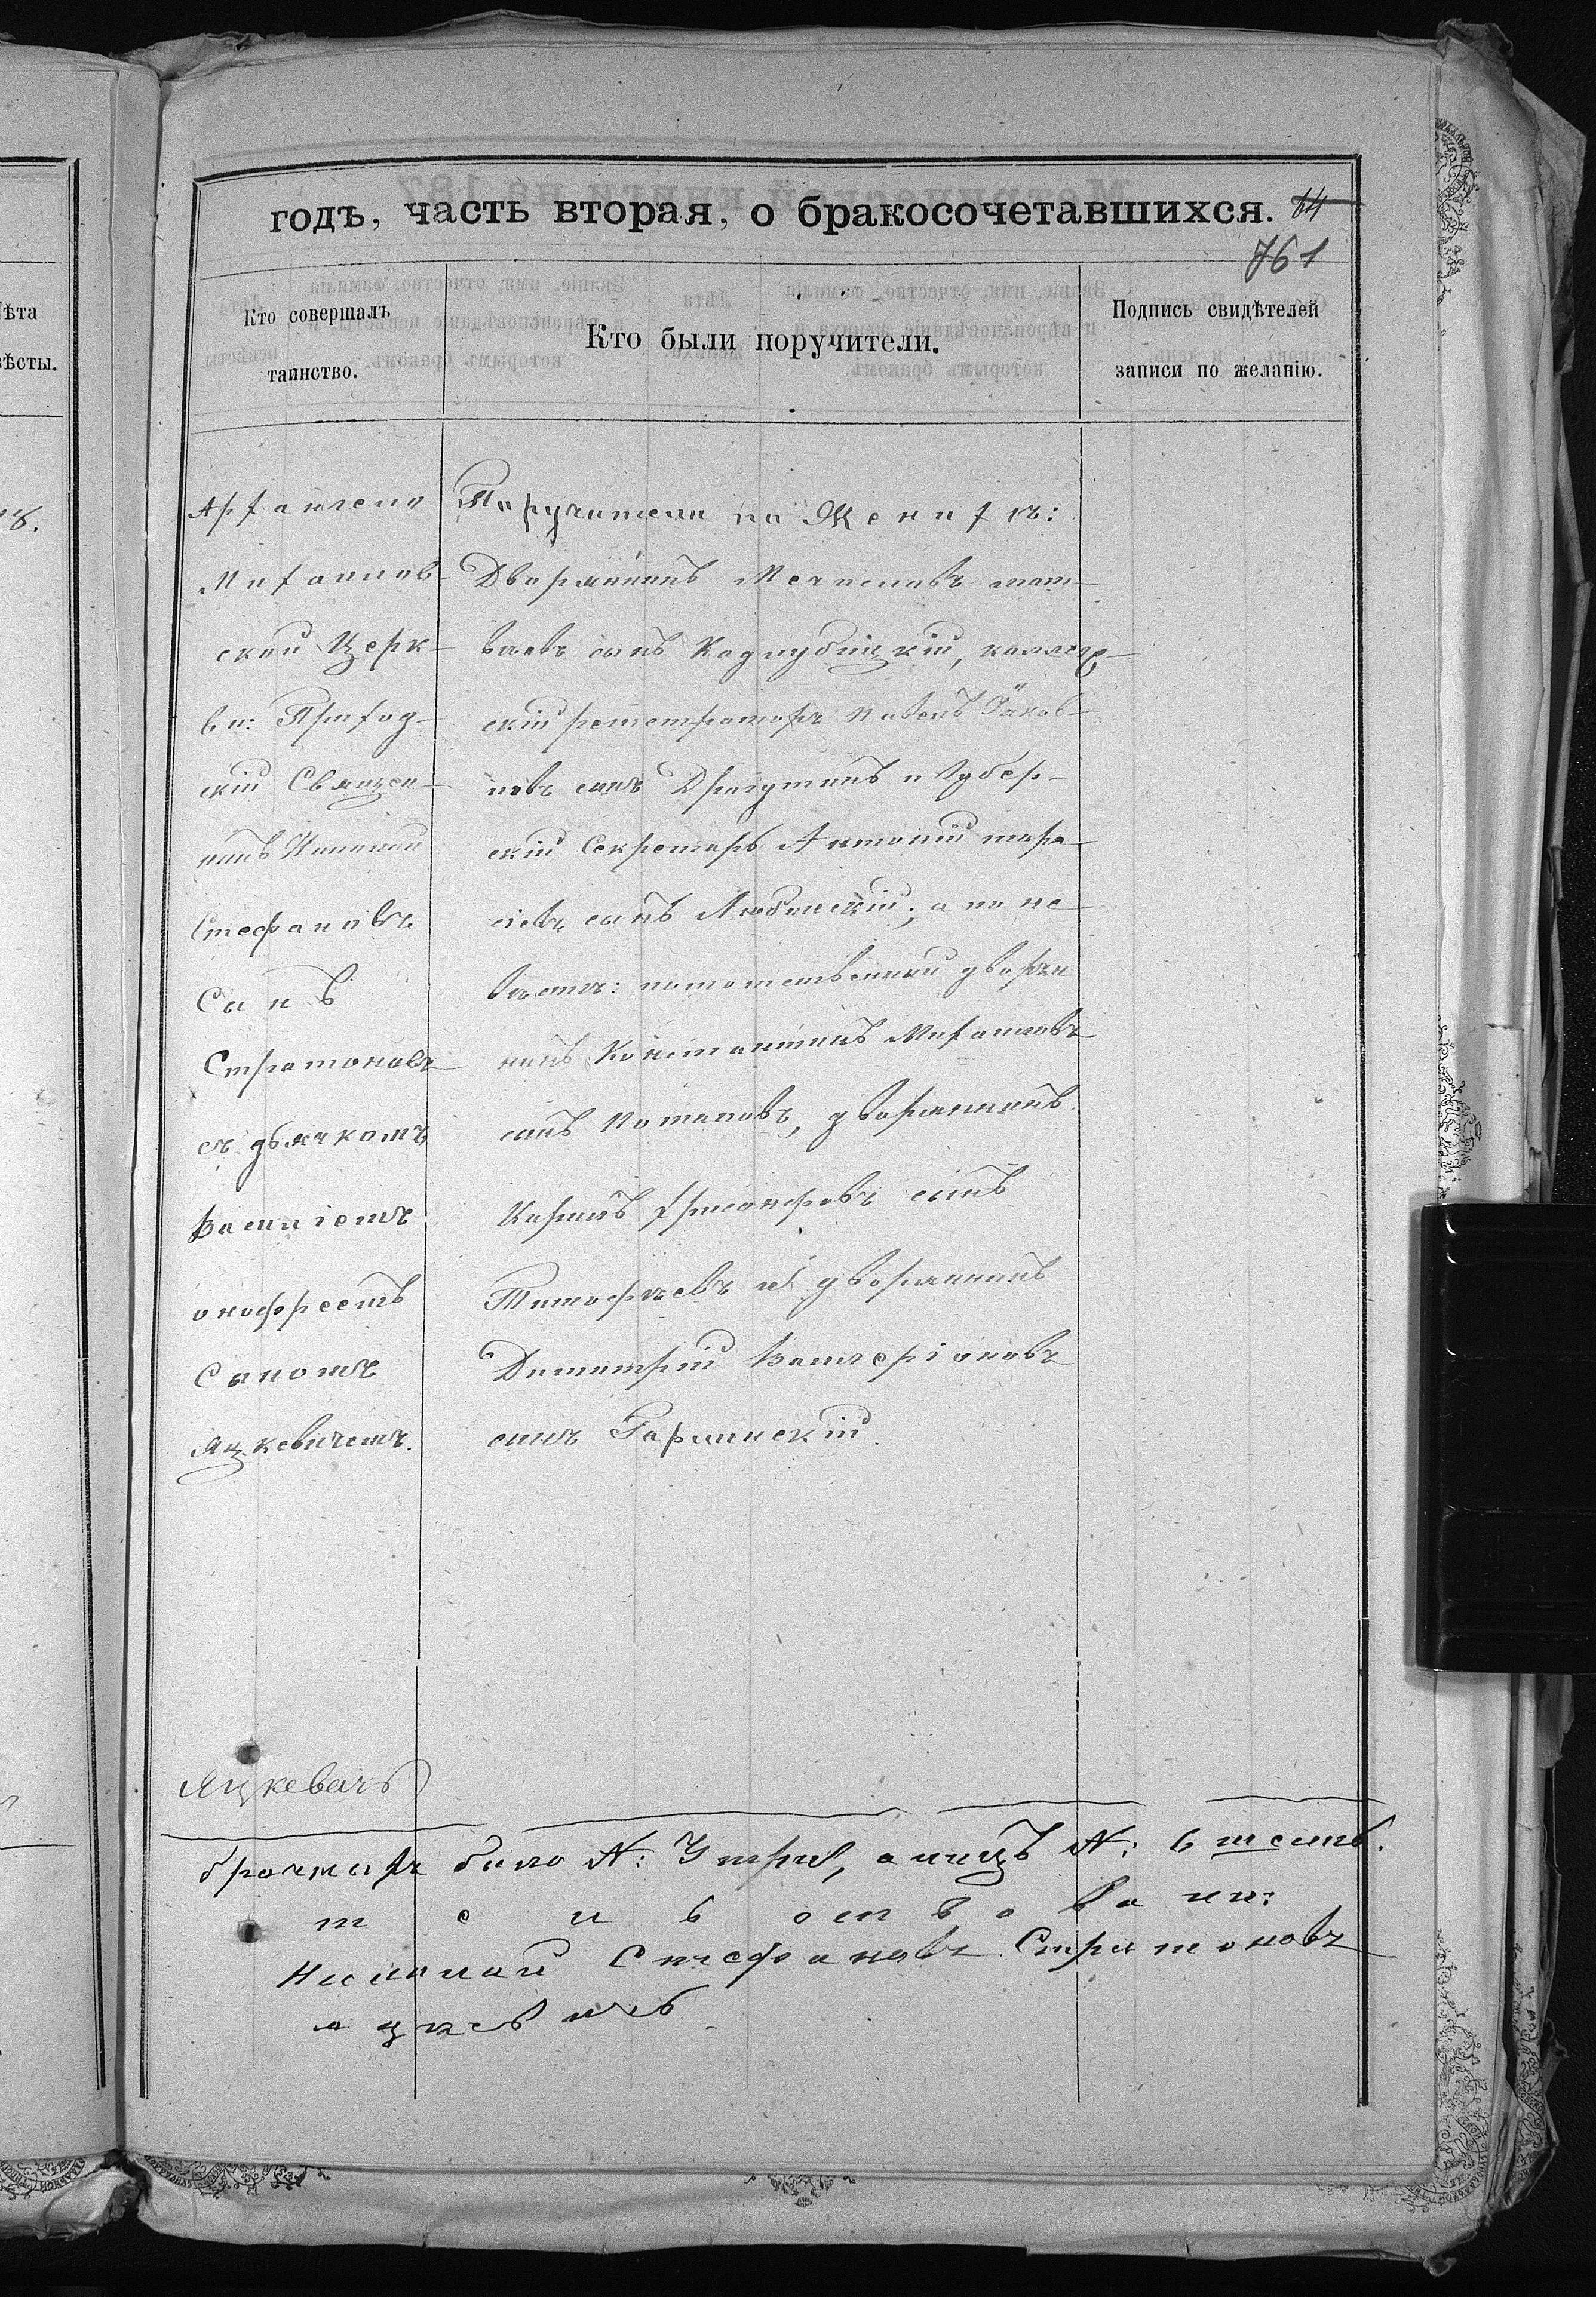 ѣта
ѣсты.
годъ, часть вторая, о бракосочетавшихся. 64
761
Кто совершалъ
таинство.
Кто были поручители.
Подпись свидѣтелей
записи по желанію.
Архангело
Михаилов-
ской Церк-
ви: Приход-
скій Священ-
никъ Николай
Стефановъ
Сынъ
Стратоновъ
съ дьячкомъ
Василіемъ
онофреемъ
Сыномъ
Яцкевичемъ.
Поручители по Женихѣ:
Дворянинъ Мечиславъ мат-
вѣевъ сынъ Кадлубицкій, коллеж-
скій регистраторъ Павелъ Яков-
левъ сынъ Драгутинъ и Губер-
скій Секретарь Антоній тара-
сіевъ сынъ Любинскій; а по не-
вѣстѣ: потомственный дворя
нинъ Константинъ Михаиловъ
сынъ Потаповъ, дворянинъ
сынъ
Тимофѣевъ и дворянинъ
Димитрій Валеріоновъ
сынъ Горлинскій.
Яцкевичъ
брачныхъ было №: 3 три, а лицъ №: 6 шесть.
Николай Стефановъ Стратоновъ
яцкевичъ